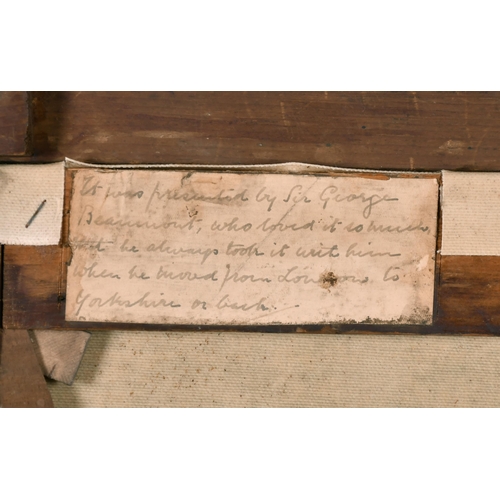 It was presented by Sir George
Beaumont, who loved it so much,
that he always took it with him
when he moved from London to
Yorkshire or back.